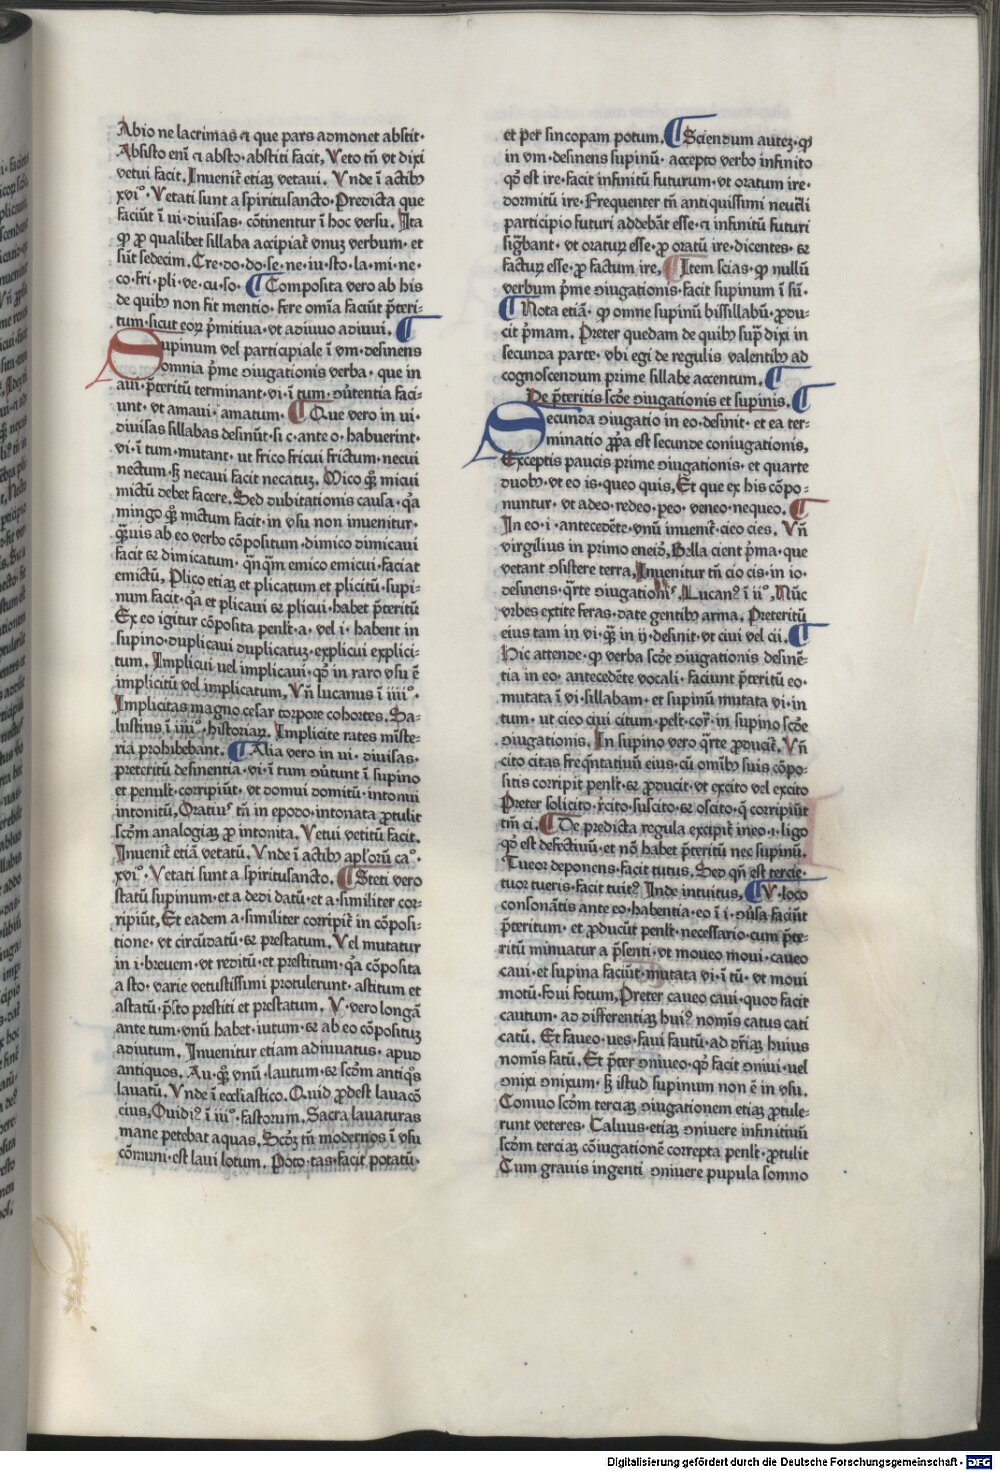 Abio ne lacrimas ⁊ que pars admonet abstit·
Absisto eni᷑ ⁊ absto·abstiti facit, Veto tn̄ vt dixi
vetui facit. Inuenit̄ etiaꝫ vetaui. Vnde ī actibꝫ
xvi°·Vetati sunt a spiritusancto·Predicta que
faciūt ī ui·diuisas·cōtinentur ī hoc versu. Ita
ꝙ ꝓ qualibet sillaba accipiat̄ vnuꝫ verbum·et
sūt sedecim. Cre·do·do·se·ne·iu·sto·la·mi·ne·
co·fri·pli·ve·cu·so· ¶ Composita vero ab his
de quibꝫ non fit mentio·fere omīa faciūt p̄teri-
tum·sicut eoꝝ p̄mitiua·vt adiuuo adiuui. ¶
Supinum vel participiale ī vm·desinens
omnia p̄me ↄiugationis verba·que in
aui·p̄teritū terminant·vi·ī tum·ↄu̇tentia faci-
unt·vt amaui·amatum. ¶ Que vero in ui·
diuisas sillabas desinūt·si c·ante o·habuerint·
vi·ī tum·mutant·ut frico fricui frictum·necui
nectum·ꝫ necaui facit necatuꝫ. Mico qꝫ̄ micui
mictū debet facere. Sed dubitationis causa·qͣa
mingo qꝫ̄ mictum facit·in vsu non inuenitur·
qꝫ̄uis ab eo verbo cōpositum·dimico dimicaui
facit ⁊ dimicatum·qn̄qꝫ̄ emico emicui·faciat
emictū, Plico etiaꝫ et plicatum et plicitū·supi-
num facit·qͣa et plicaui ⁊ plicui·habet p̄teritū
Ex eo igitur cōposita penlt̄·a·vel i·habent in
supino·duplicaui duplicatuꝫ·explicui explici-
tum. Implicui uel implicaui·qͦ in raro vsu ē
implicitū vel implicatum, Vn̄ lucanus ī iiii°·
Implicitas magno cesar torpore cohortes. Sa-
lustius ī iiii°·historiaꝝ. Implicite rates mīste-
ria prohibebant. ¶ Alia vero in ui·diuisas·
preteritū desinentia·vi·ī tum ↄu̇tunt ī supino
et penult̄·corripiūt·vt domui domitū·intonui
intonitū, Oratiuꝰ tn̄ in epodo·intonata ꝓtulit
scd̄m analogiaꝫ ꝓ intonita. Vetui vetitū facit.
Inuenit̄ etiā vetatū. Vnde ī actibꝫ apl̄orū ca°·
xvi°·Vetati sunt a spiritusancto. ¶ Steti vero
statū supinum·et a dedi datū·et a·similiter cor-
ripiūt, Et eadem a·similiter corripit̄ in cōposi-
tione·vt circūdatū·⁊ prestatum. Vel mutatur
in i·breuem·vt reditū·et prestitum·qͣa cōposita
a sto·varie vetustissimi protulerunt·astitum et
astatū·p̄sto prestiti et prestatum. V·vero longā
ante tum·vnū habet·iutum·⁊ ab eo cōposituꝫ
adiutum. Inuenitur etiam adiuuatus·apud
antiquos. Au·qꝫ̄ vnū·lautum·⁊ scd̄m antiqͦs
lauatū. Vnde ī eccl̄iastico. Quid ꝓdest lauacō
cius, Ouidiꝰ ī iii°·fastorum. Sacra lauaturas
mane petebat aquas. Scd̄ꝫ tn̄ modernos ī vsu
cōmuni·est laui lotum. Poto·tas·facit potatū·
et per sincopam potum. ¶ Sciendum auteꝫ·ꝙ
in vm·desinens supinū·accepto verbo infinito
qͦ est ire·facit infinitū futurum·vt oratum ire·
dormitū ire·Frequenter tn̄ antiquissimi neut̄li
participio futuri addebāt esse·⁊ infinitū futuri
sigͣbant·vt oratuꝝ esse·ꝓ oratū ire·dicentes·⁊
factuꝝ esse·ꝓ factum ire. ¶ Item scias·ꝙ nullū
verbum p̄me ↄiugationis·facit supinum ī sū·
¶ Nota etiā·ꝙ omne supinū bissillabū·ꝓdu-
cit p̄mam. Preter quedam de quibꝫ sup̄ dixi in
secunda parte·vbi egi de regulis valentibꝫ ad
cognoscendum prime sillabe accentum. ¶
De p̄teritis scd̄e ↄiugationis et supinis. ¶
Secunda ↄiugatio in eo·desinit·et ea ter-
minatio ꝓp̄a est secunde coniugationis,
Exceptis paucis prime ↄiugationis·et quarte
duobꝫ·vt eo is·queo quis, Et que ex his cōpo-
nuntur·vt adeo·redeo·pereo·veneo·nequeo. ¶
In eo·i·antecedēte·vnū inuenit̄·cieo cies. Vn̄
virgilius in primo eneid̄, Bella cient p̄ma·que
vetant ↄsistere terra, Inuenitur tn̄ cio cis·in io·
desinens·qͣrte ↄiugationis, Lucanꝰ ī ii°, Nūc
vrbes extite feras·date gentibꝫ arma. Preteritū
eius tam in vi·qꝫ̄ in ij·desinit·vt ciui vel cii. ¶
Hic attende·ꝙ verba scd̄e ↄiugationis desinē-
tia in eo·antecedēte vocali·faciunt p̄teritū eo·
mutata ī vi·sillabam·et supinū mutata vi·in
tum·ut cieo ciui citum·pelt̄·cor̄·in supino scd̄e
ↄiugationis. In supino vero qͣrte ꝓducit̄. Vn̄
cito citas freq̄ntatiuū eius·cū omībꝫ suis cōpo-
sitis corripit penlt̄·⁊ ꝓducit·vt excito vel excito
Preter solicito·r̄cito·suscito·⁊ oscito·q̄ corripiūt
tm̄ ci. ¶ De predicta regula excipit̄ ineo·i·ligo
qͦ est defectiuū·et nō habet p̄teritū nec supinū.
Tueor deponens·facit tutus. Sed qn̄ est tercie·
tuor tueris·facit tuitꝰ Inde intuitus, ¶ V·loco
consonātis ante eo·habentia·eo ī i·ↄu̇sa faciūt
p̄teritum·et ꝓducūt penlt̄·necessario·cum p̄te-
ritū minuatur a p̄senti·vt moueo moui·caueo
caui·et supina faciūt·mutata vi·ī tū·vt moui
motū·foui fotum, Preter caueo caui·quod facit
cautum·ad differentiaꝫ huiꝰ nomis catus cati
catū. Et faueo·ues·faui fautū·ad dr̄iaꝫ huius
nomis fatū. Et p̄ter ↄniueo·qͦ facit ↄniui·uel
ↄnixi ↄnixum·ꝫ istud supinum non ē in vsu.
Conuo scd̄m terciaꝫ ↄiugationem etiaꝫ ꝓtule-
runt veteres. Caluus·etiaꝫ ↄniuere infinitiuū
scd̄m terciaꝫ cōiugationē correpta penlt̄·ꝓtulit
Cum grauis ingenti ↄniuere pupula somno
Digitalisierung gefördert durch die Deutsche Forschungsgemeinschaft - DFG